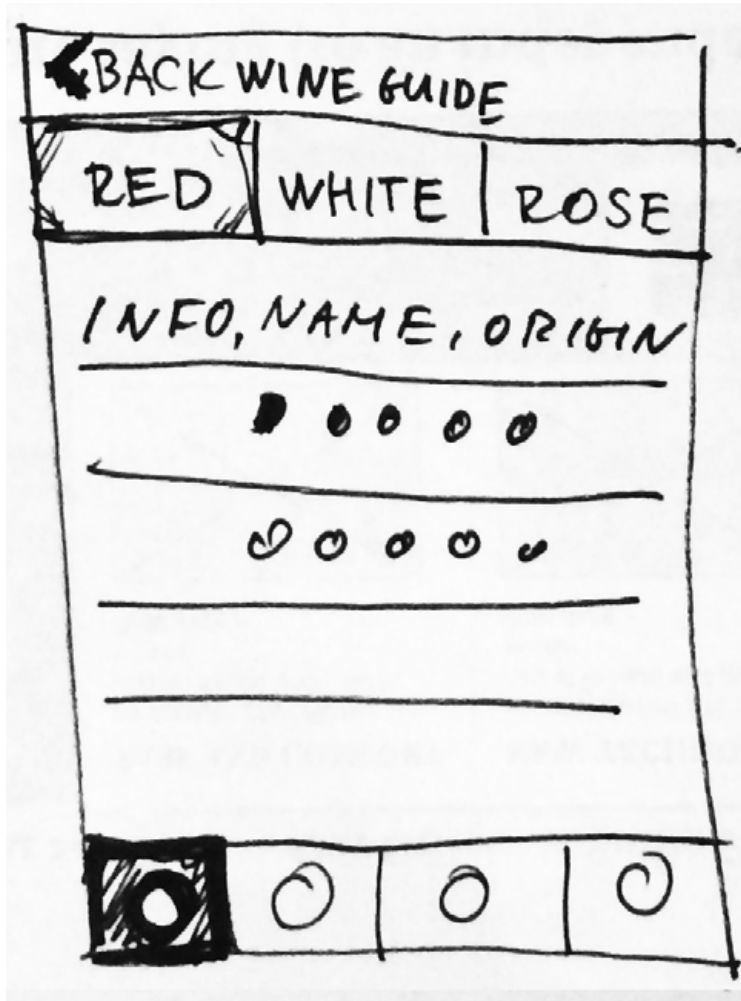 BACK WINE GUIDE
RED WHITE ROSE
INFO, NAME, ORIGIN